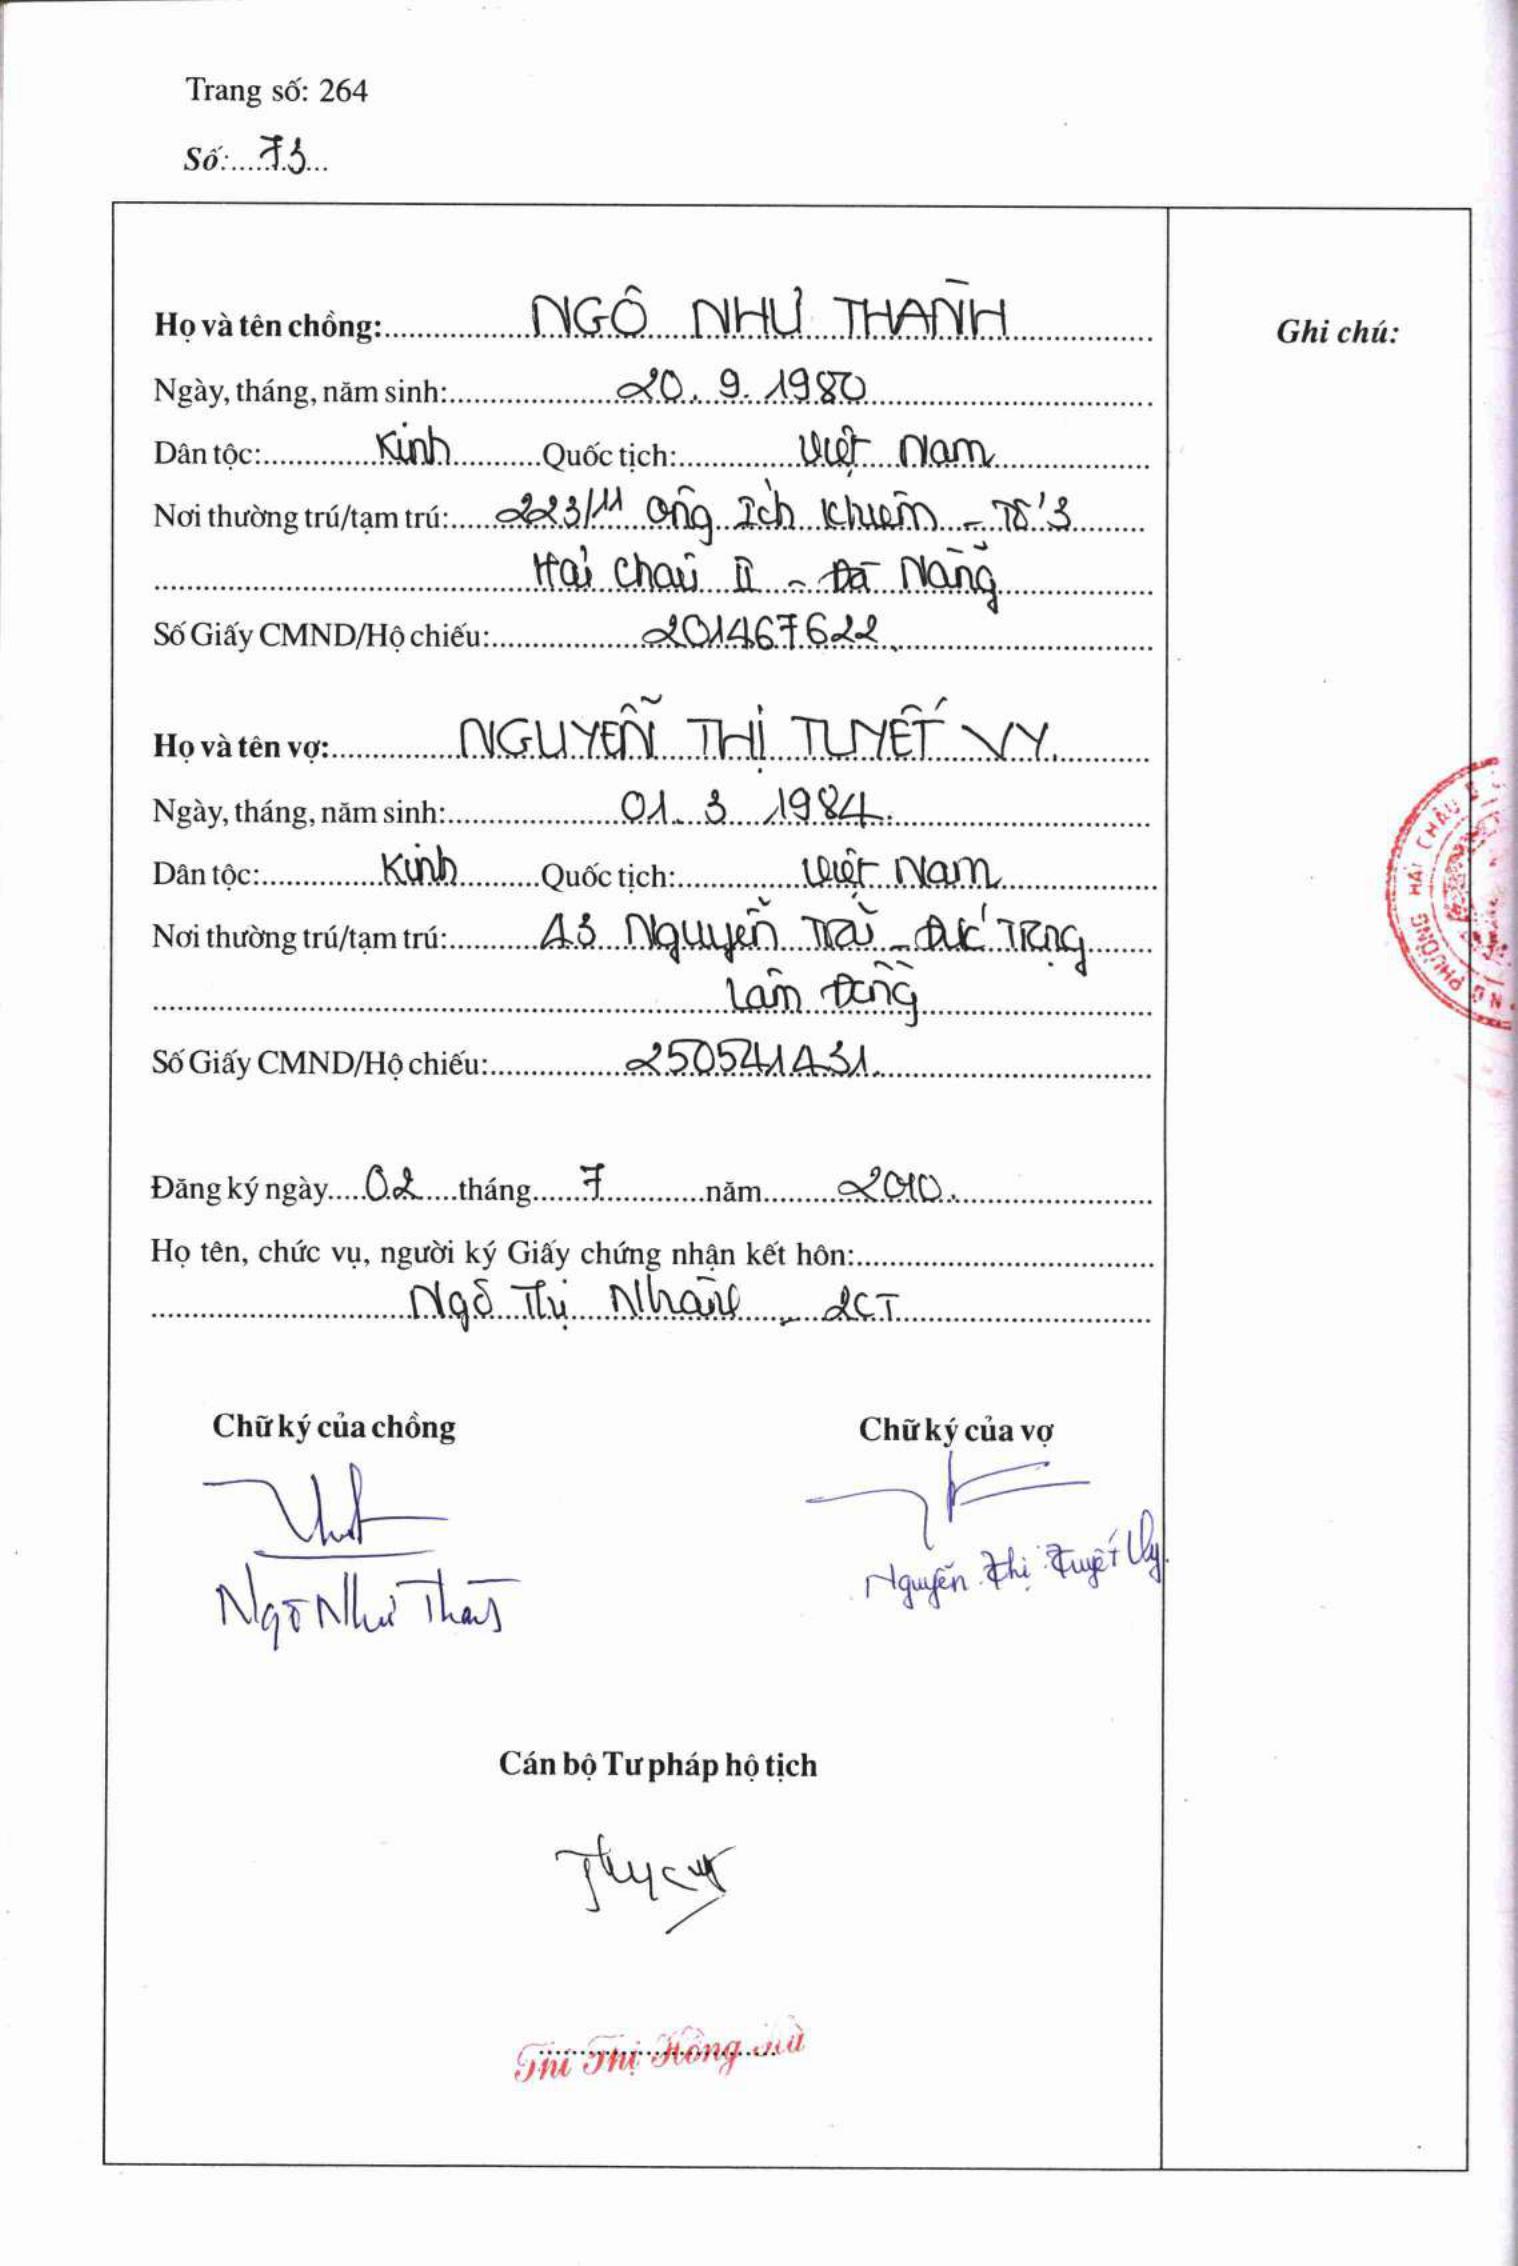 Trang số: 264
Số: 73
Họ và tên chồng: NGÔ NHƯ THÀNH
Ghi chú:
Ngày, tháng, năm sinh: 20.9.1980
Dân tộc: Kinh Quốc tịch: Việt Nam
Nơi thường trú/tạm trú: 223/11 Ông Ích Khiêm - Tổ 3
Hải Châu II - Đà Nẵng
Số Giấy CMND/Hộ chiếu: 201467622
Họ và tên vợ: NGUYỄN THỊ TUYẾT VY.
Ngày, tháng, năm sinh: 01.3.1984.
Dân tộc: Kinh Quốc tịch: Việt Nam
Nơi thường trú/tạm trú: 13 Nguyễn Trãi - Đức Trọng
Lâm Đồng
Số Giấy CMND/Hộ chiếu: 250541431.
PHƯỜNG HẢI CHÂU
Đăng ký ngày 02 tháng 7 năm 2010.
Họ tên, chức vụ, người ký Giấy chứng nhận kết hôn:
Ngô Thị - 2CT
Chữ ký của chồng
Chữ ký của vợ
Ngô Như Thành
Nguyễn Thị Tuyết Vy.
Cán bộ Tư pháp hộ tịch
Thị Hồng